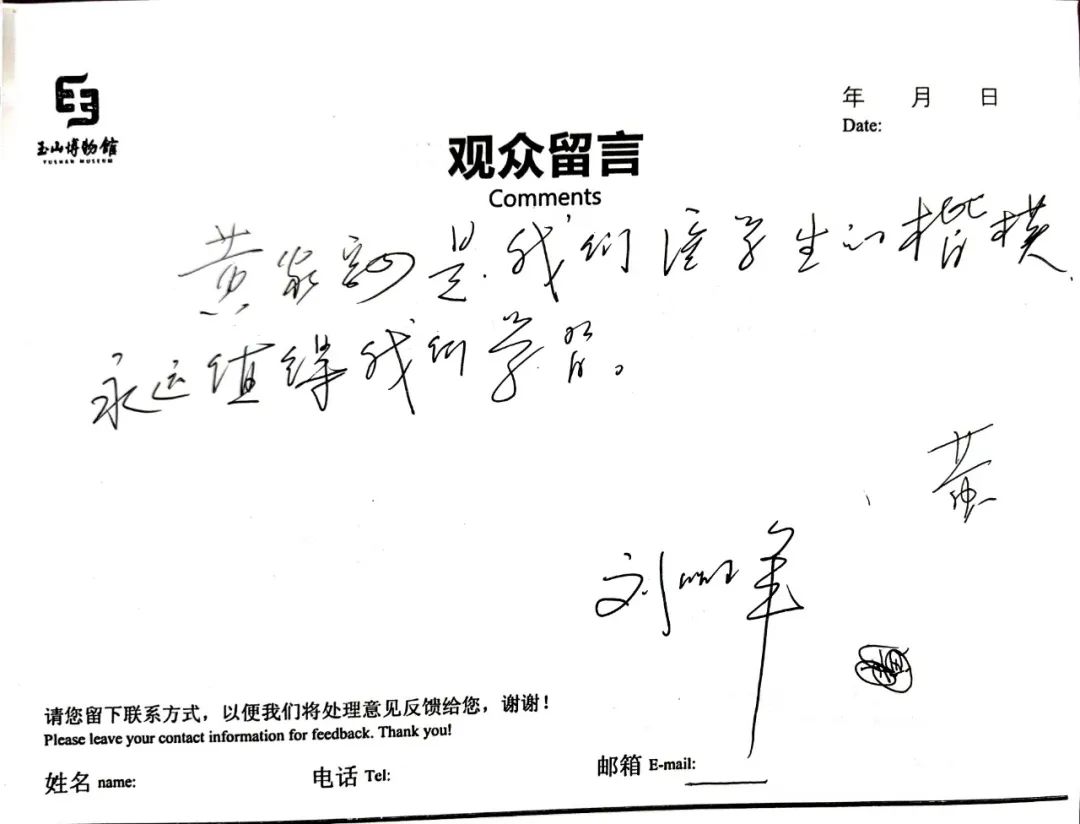 玉山博物馆
YUSHAN MUSEUM
年 月 日
Date:
观众留言
Comments
黄家驷是我们医学生的楷模
永远值得我们学习。
黄
刘
请您留下联系方式，以便我们将处理意见反馈给您，谢谢！
Please leave your contact information for feedback. Thank you!
姓名 name:
电话 Tel:
邮箱 E-mail: